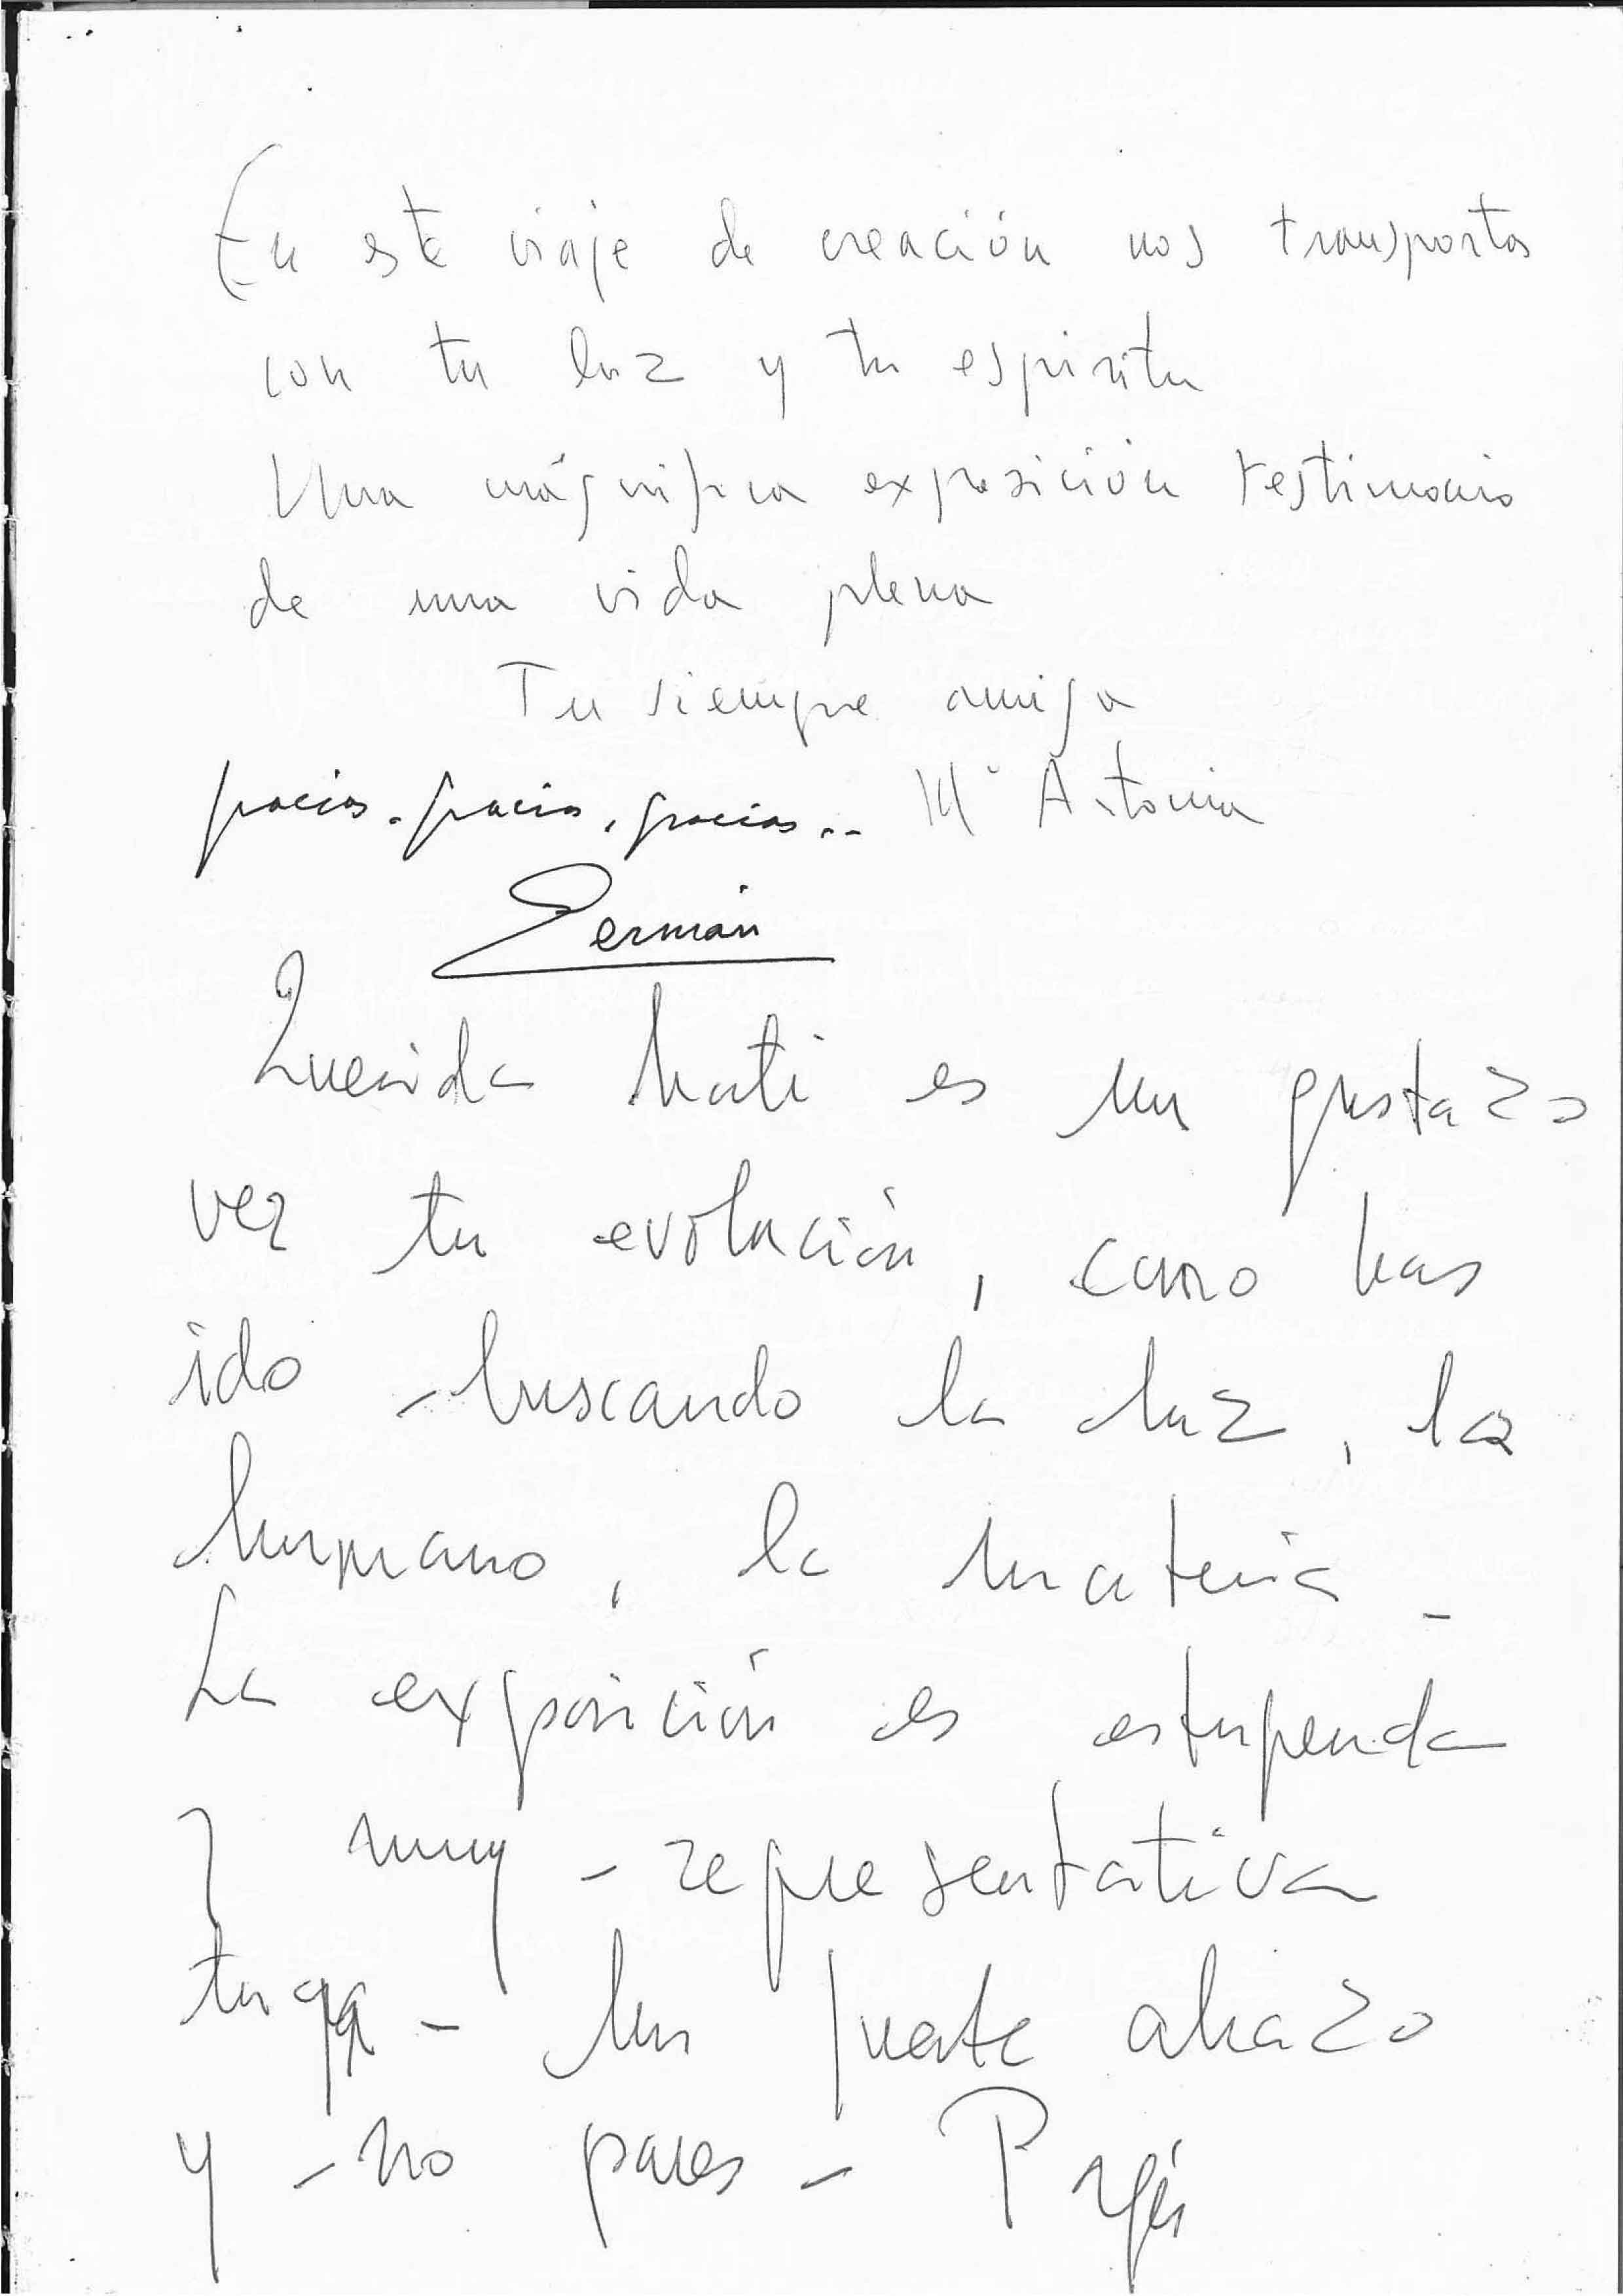 En este viaje de creación nos transportas
con tu luz y tu espiritu
Una mágnifica exposición testimonio
de una vida plena
Tu siempre amiga
gracias. gracias, gracias... Mª Antonia
Germán
Querida Kati es un gustazo
ver tu evolución, como has
ido buscando la luz, lo
humano, la materia -
La exposición es estupenda
y muy representativa
tuya - Un fuerte abrazo
y no pares -